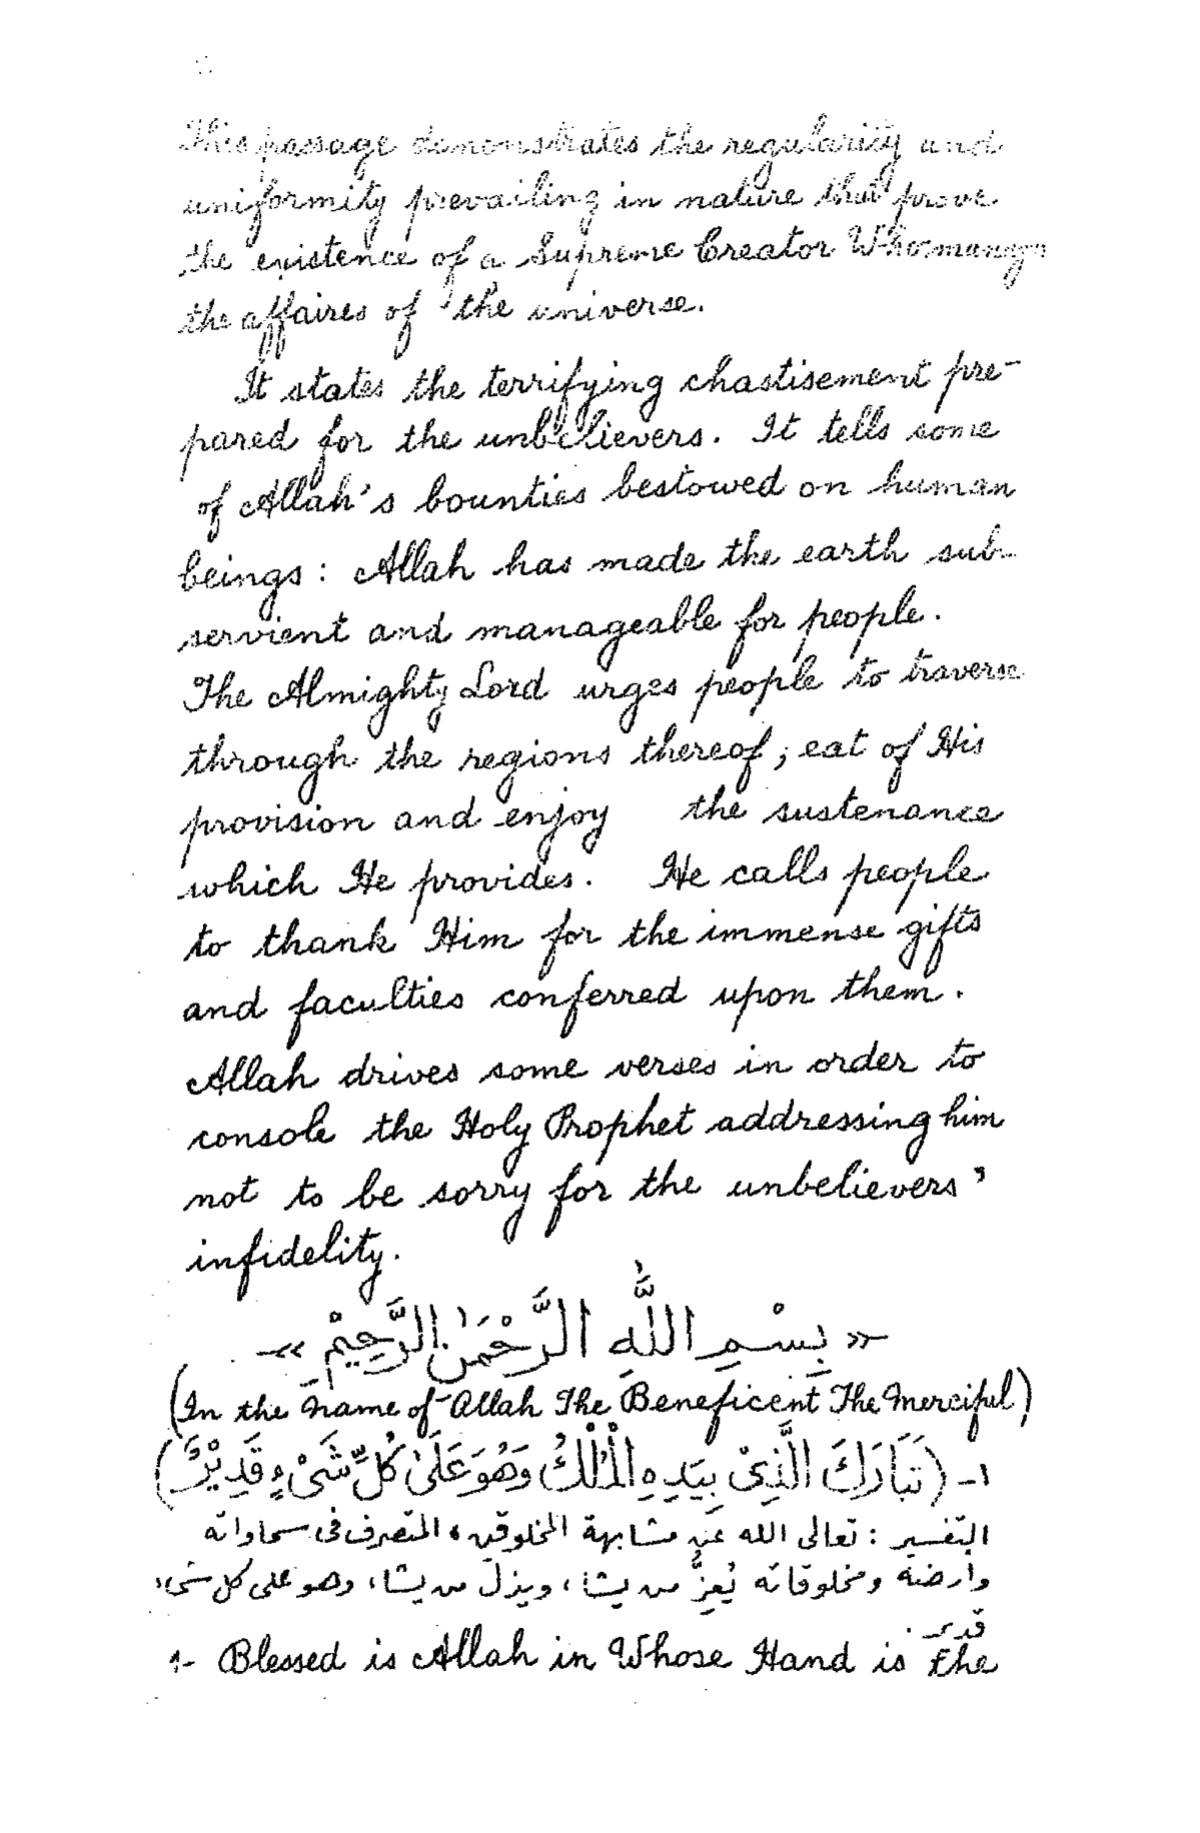 This passage demonstrates the regularity and
uniformity prevailing in nature that prove
the existence of a Supreme Creator Who manages
the affaires of the universe.
It states the terrifying chastisement pre-
pared for the unbelievers. It tells some
of Allah's bounties bestowed on human
beings: Allah has made the earth sub-
servient and manageable for people.
The Almighty Lord urges people to traverse
through the regions thereof; eat of His
provision and enjoy the sustenance
which He provides. He calls people
to thank Him for the immense gifts
and faculties conferred upon them.
Allah drives some verses in order to
console the Holy Prophet addressing him
not to be sorry for the unbelievers'
infidelity.
«بِسْمِ اللَّهِ الرَّحْمَنِ الرَّحِيْمِ»
(In the name of Allah The Beneficent The Merciful)
١- (تَبَارَكَ الَّذِىْ بِيَدِهِ الْمُلْكُ وَهُوَ عَلَىٰ كُلِّ شَىْءٍ قَدِيْرٌ)
التفسير : تعالى الله عن مشابهة المخلوقين، المتصرف فى سماواته
وارضه ومخلوقاته يُعِزُّ من يشاء، ويذل من يشاء، وهو على كل شىء
قدير.
1- Blessed is Allah in Whose Hand is the